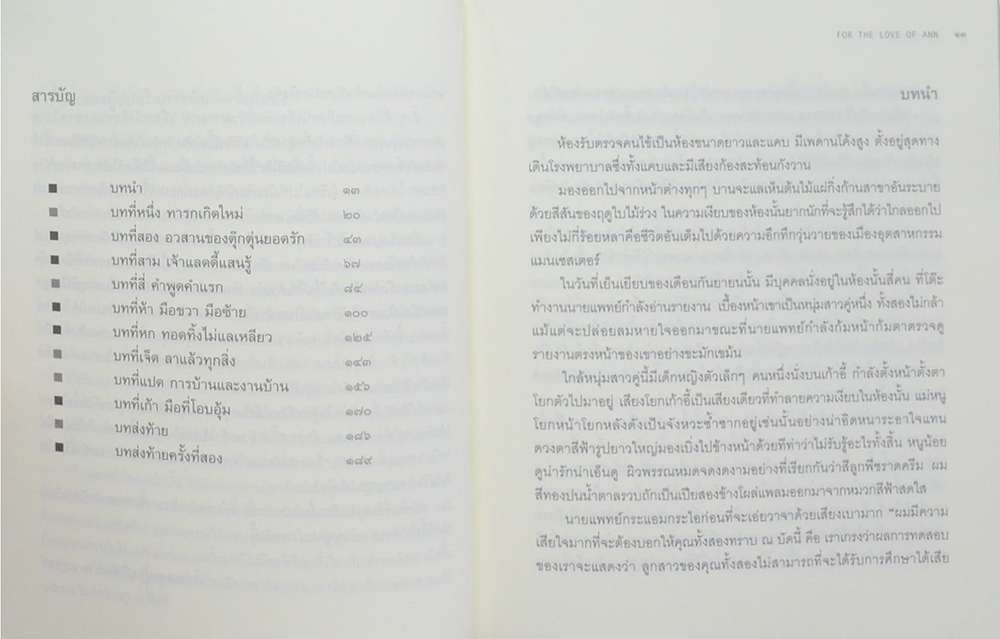 สารบัญ
บทนำ ๑๓
บทที่หนึ่ง ทารกเกิดใหม่ ๒๐
บทที่สอง อวสานของตุ๊กตุ่นยอดรัก ๔๓
บทที่สาม เจ้าแลดดี้แสนรู้ ๖๗
บทที่สี่ คำพูดคำแรก ๘๔
บทที่ห้า มือขวา มือซ้าย ๑๐๐
บทที่หก ทอดทิ้งไม่แลเหลียว ๑๒๕
บทที่เจ็ด ลาแล้วทุกสิ่ง ๑๔๓
บทที่แปด การบ้านและงานบ้าน ๑๕๖
บทที่เก้า มือที่โอบอุ้ม ๑๗๐
บทส่งท้าย ๑๘๖
บทส่งท้ายครั้งที่สอง ๑๘๙
FOR THE LOVE OF ANN ๑๓
บทนำ
ห้องรับตรวจคนไข้เป็นห้องขนาดยาวและแคบ มีเพดานโค้งสูง ตั้งอยู่สุดทาง
เดินโรงพยาบาลซึ่งทั้งแคบและมีเสียงก้องสะท้อนกังวาน
มองออกไปจากหน้าต่างทุกๆ บานจะแลเห็นต้นไม้แผ่กิ่งก้านสาขาอันระบาย
ด้วยสีสันของฤดูใบไม้ร่วง ในความเงียบของห้องนั้นยากนักที่จะรู้สึกได้ว่าไกลออกไป
เพียงไม่กี่ร้อยหลาคือชีวิตอันเต็มไปด้วยความอึกทึกวุ่นวายของเมืองอุตสาหกรรม
แมนเชสเตอร์
ในวันที่เย็นเยียบของเดือนกันยายนนั้น มีบุคคลนั่งอยู่ในห้องนั้นสี่คน ที่โต๊ะ
ทำงานนายแพทย์กำลังอ่านรายงาน เบื้องหน้าเขาเป็นหนุ่มสาวคู่หนึ่ง ทั้งสองไม่กล้า
แม้แต่จะปล่อยลมหายใจออกมาขณะที่นายแพทย์กำลังก้มหน้าก้มตาตรวจดู
รายงานตรงหน้าของเขาอย่างขะมักเขม้น
ใกล้หนุ่มสาวคู่นี้มีเด็กหญิงตัวเล็กๆ คนหนึ่งนั่งบนเก้าอี้ กำลังตั้งหน้าตั้งตา
โยกตัวไปมาอยู่ เสียงโยกเก้าอี้เป็นเสียงเดียวที่ทำลายความเงียบในห้องนั้น แม่หนู
โยกหน้าโยกหลังดังเป็นจังหวะซ้ำซากอยู่เช่นนั้นอย่างน่าอิดหนาระอาใจแทน
ดวงตาสีฟ้ารูปยาวใหญ่มองเป๋งไปข้างหน้าด้วยทีท่าว่าไม่รับรู้อะไรทั้งสิ้น หนูน้อย
ดูน่ารักน่าเอ็นดู ผิวพรรณหมดจดงดงามอย่างที่เรียกกันว่าสีลูกพีชราดครีม ผม
สีทองปนน้ำตาลรวบถักเป็นเปียสองข้างโผล่แพลมออกมาจากหมวกสีฟ้าสดใส
นายแพทย์กระแอมกระไอก่อนที่จะเอ่ยวาจาด้วยเสียงเบามาก “ผมมีความ
เสียใจมากที่จะต้องบอกให้คุณทั้งสองทราบ ณ บัดนี้ คือ เราเกรงว่าผลการทดสอบ
ของเราจะแสดงว่า ลูกสาวของคุณทั้งสองไม่สามารถที่จะได้รับการศึกษาได้เสีย